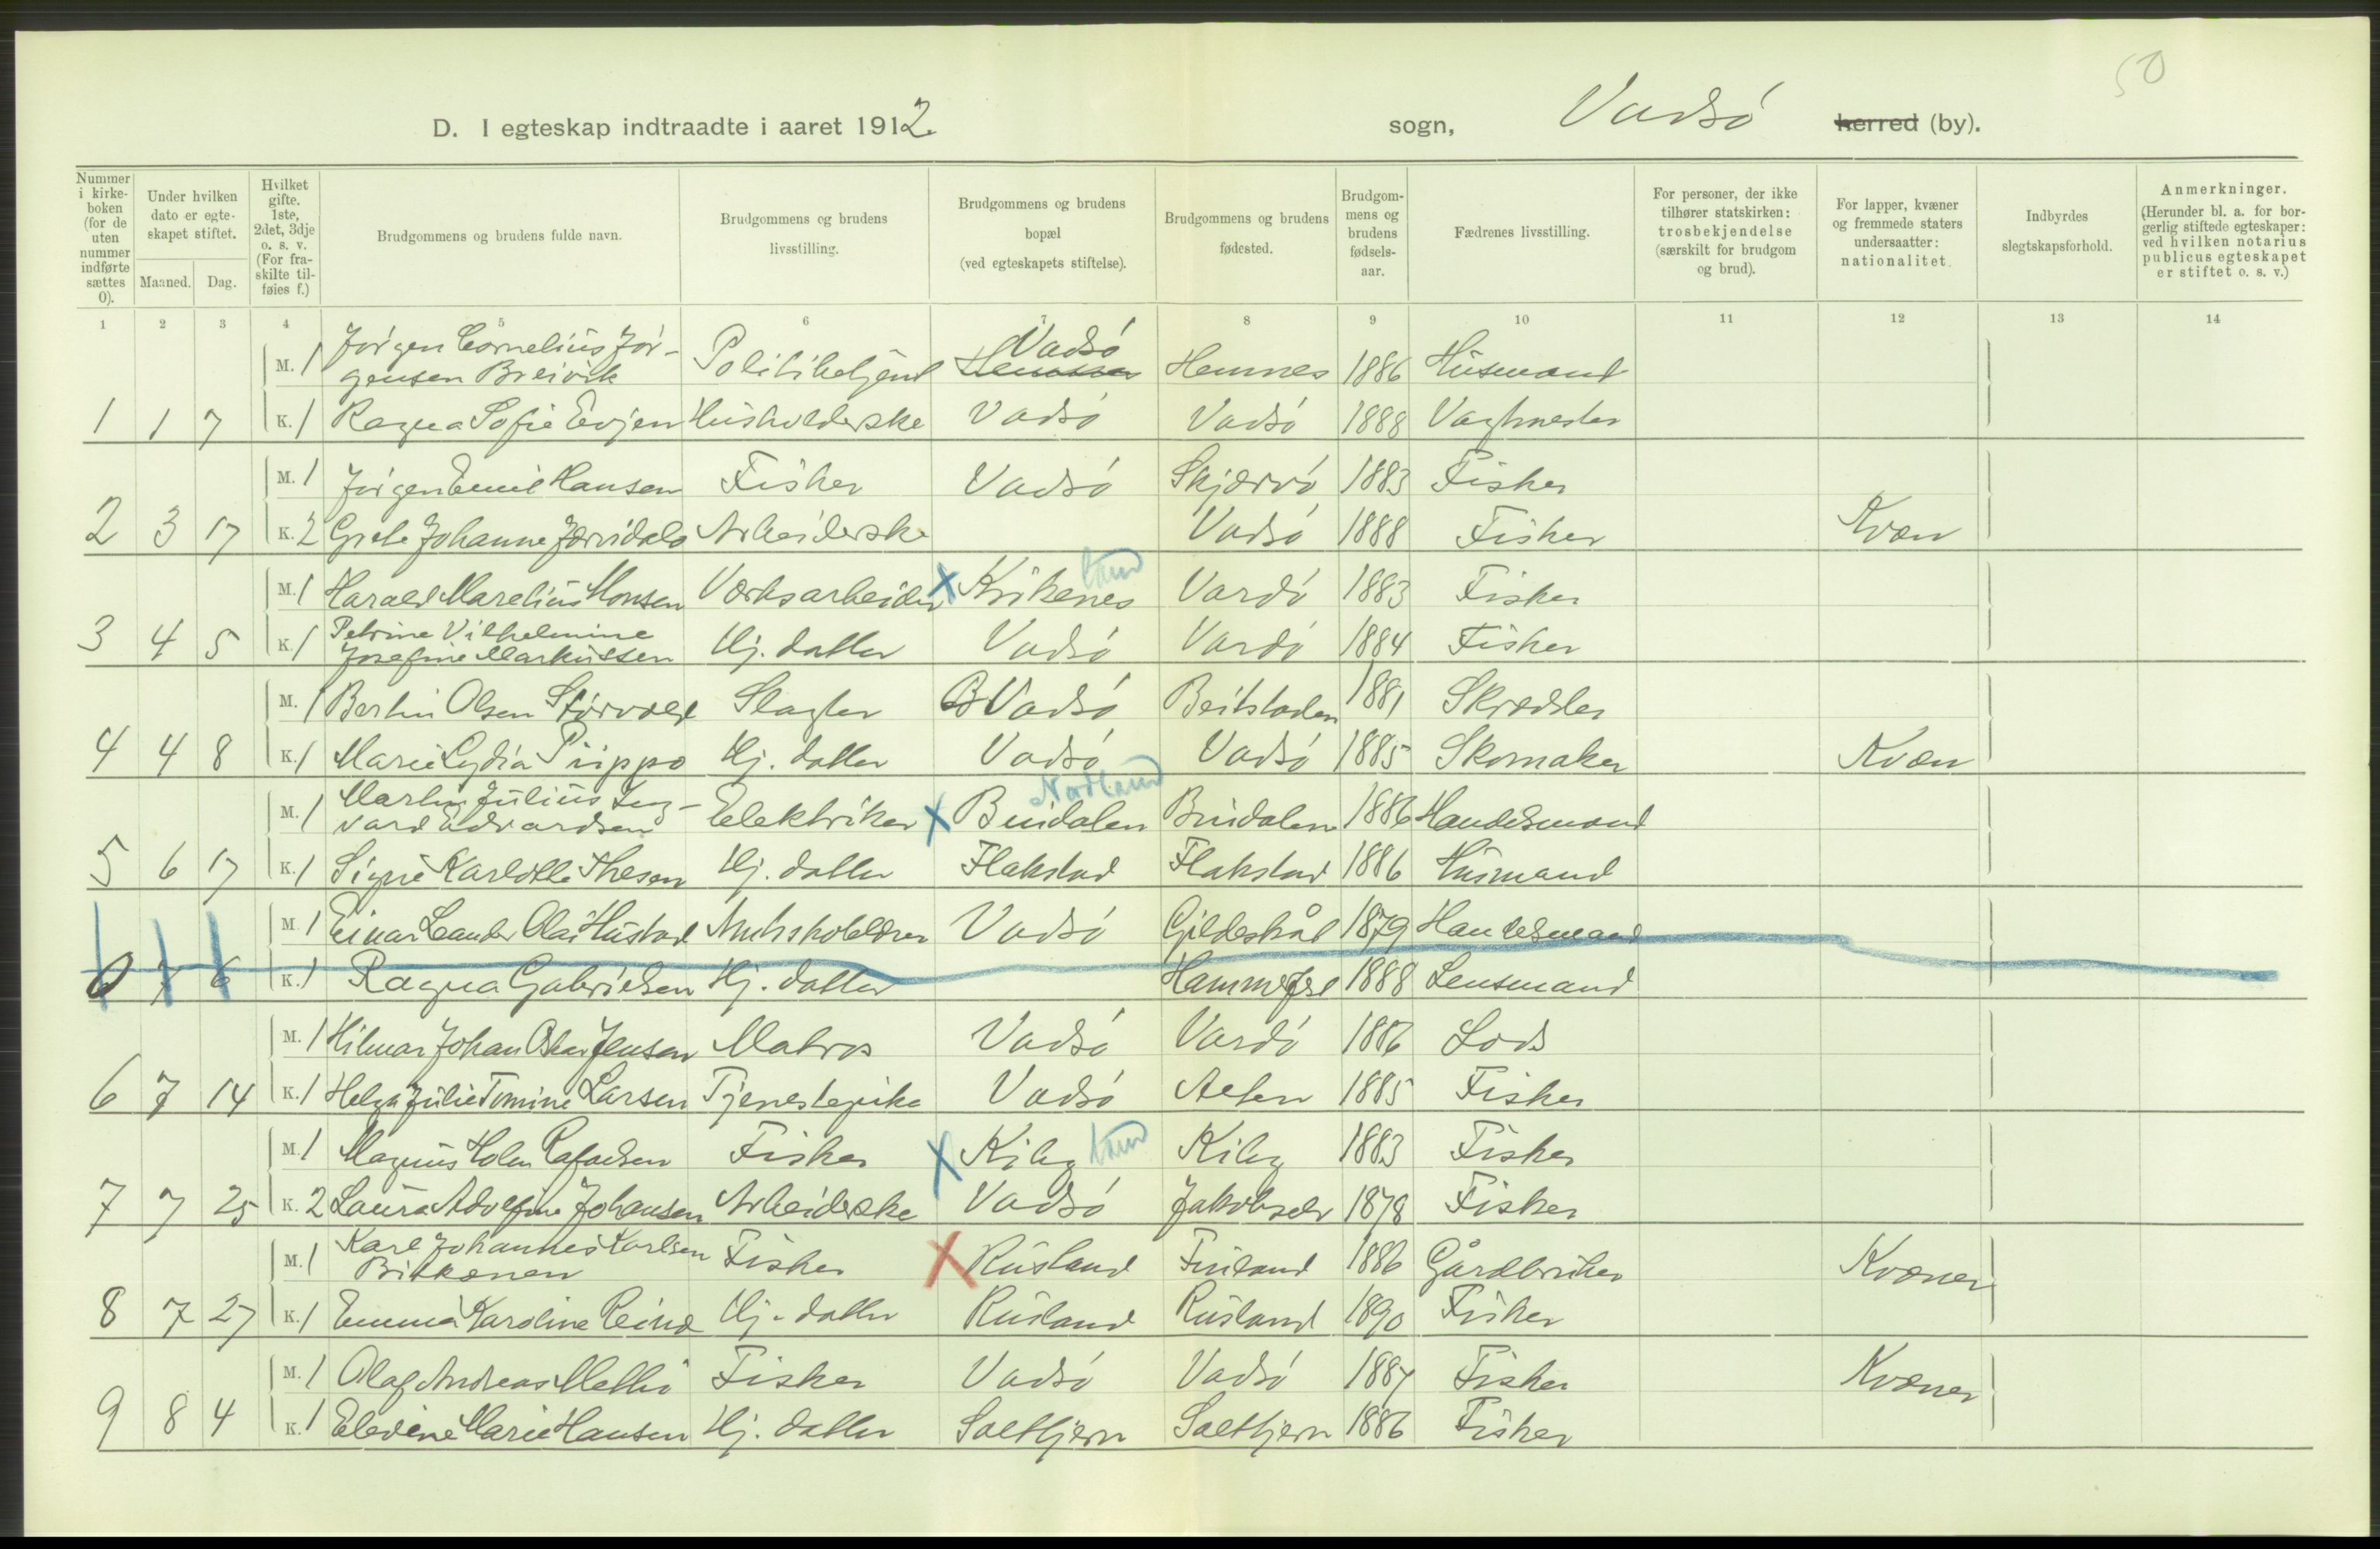 50
D. I egteskap indtraadte i aaret 1912. sogn, Vadsø herred (by).
Nummer i kirkeboken (for de uten nummer indførte sættes 0).
Under hvilken dato er egteskapet stiftet.
Maaned. Dag.
Hvilket gifte. 1ste, 2det, 3dje o. s. v. (For fraskilte tilføies f.)
Brudgommens og brudens fulde navn.
Brudgommens og brudens livsstilling.
Brudgommens og brudens bopæl (ved egteskapets stiftelse).
Brudgommens og brudens fødested.
Brudgommens og brudens fødselsaar.
Fædrenes livsstilling.
For personer, der ikke tilhører statskirken: trosbekjendelse (særskilt for brudgom og brud).
For lapper, kvæner og fremmede staters undersaatter: nationalitet.
Indbyrdes slegtskapsforhold.
Anmerkninger. (Herunder bl. a. for borgerlig stiftede egteskaper: ved hvilken notarius publicus egteskapet er stiftet o. s. v.)
1 2 3 4 5 6 7 8 9 10 11 12 13 14
M. 1 Jørgen Cornelius Jørgensen Breivik Politibetjent Vadsø Hemnes 1886 Husmand
1 1 7 K. 1 Ragna Sofie Evjen Husholderske Vadsø Vadsø 1888 Vagtmester
M. 1 Jørgen Emil Hansen Fisker Vadsø Skjærvø 1883 Fisker
2 3 17 K. 2 Grete Johanne Jærvidalo Arbeiderske Vadsø 1888 Fisker Kvæn
M. 1 Harald Marelius Monsen Værksarbeider X Kirkenes Vardø 1883 Fisker
3 4 5 K. 1 Petrine Vilhelmine Josefine Markussen Hj. datter Vadsø Vardø 1884 Fisker
M. 1 Bertin Olsen Størvold Slagter Vadsø Beitstaden 1881 Skrædder
4 4 8 K. 1 Marie Lydia Piippo Hj. datter Vadsø Vadsø 1885 Skomaker Kvæn
Nordland
M. 1 Martin Julius Ingvard Edvardsen Elektriker X Bindalen Bindalen 1886 Handelsmand
5 6 17 K. 1 Signe Karlotte Thesen Hj. datter Flakstad Flakstad 1886 Husmand
M. 1 Einar Leander Olai Hustad Amtsskolelærer Vadsø Gildeskål 1879 Handelsmand
0 7 6 K. 1 Ragna Gabrielsen Hj. datter Hammerfest 1888 Lensmand
M. 1 Hilmar Johan Oskar Jensen Matros Vadsø Vardø 1886 Lods
6 7 14 K. 1 Helga Julie Tomine Larsen Tjenestepike Vadsø Alten 1885 Fisker
M. 1 Magnus Holm Rafaelsen Fisker X Kiby Kiby 1883 Fisker
7 7 25 K. 2 Laura Adolfine Johansen Arbeiderske Vadsø Jakobselv 1878 Fisker
M. 1 Karl Johannes Karlsen Fisker X Rusland Finland 1886 Gårdbruker Kvæner
8 7 27 K. 1 Emma Karoline Hj. datter Rusland Rusland 1890 Fisker
M. 1 Olaf Andreas Fisker Vadsø Vadsø 1887 Fisker Kvæner
9 8 4 K. 1 Eledine Marie Hansen Hj. datter Saltkjern Saltkjern 1886 Fisker